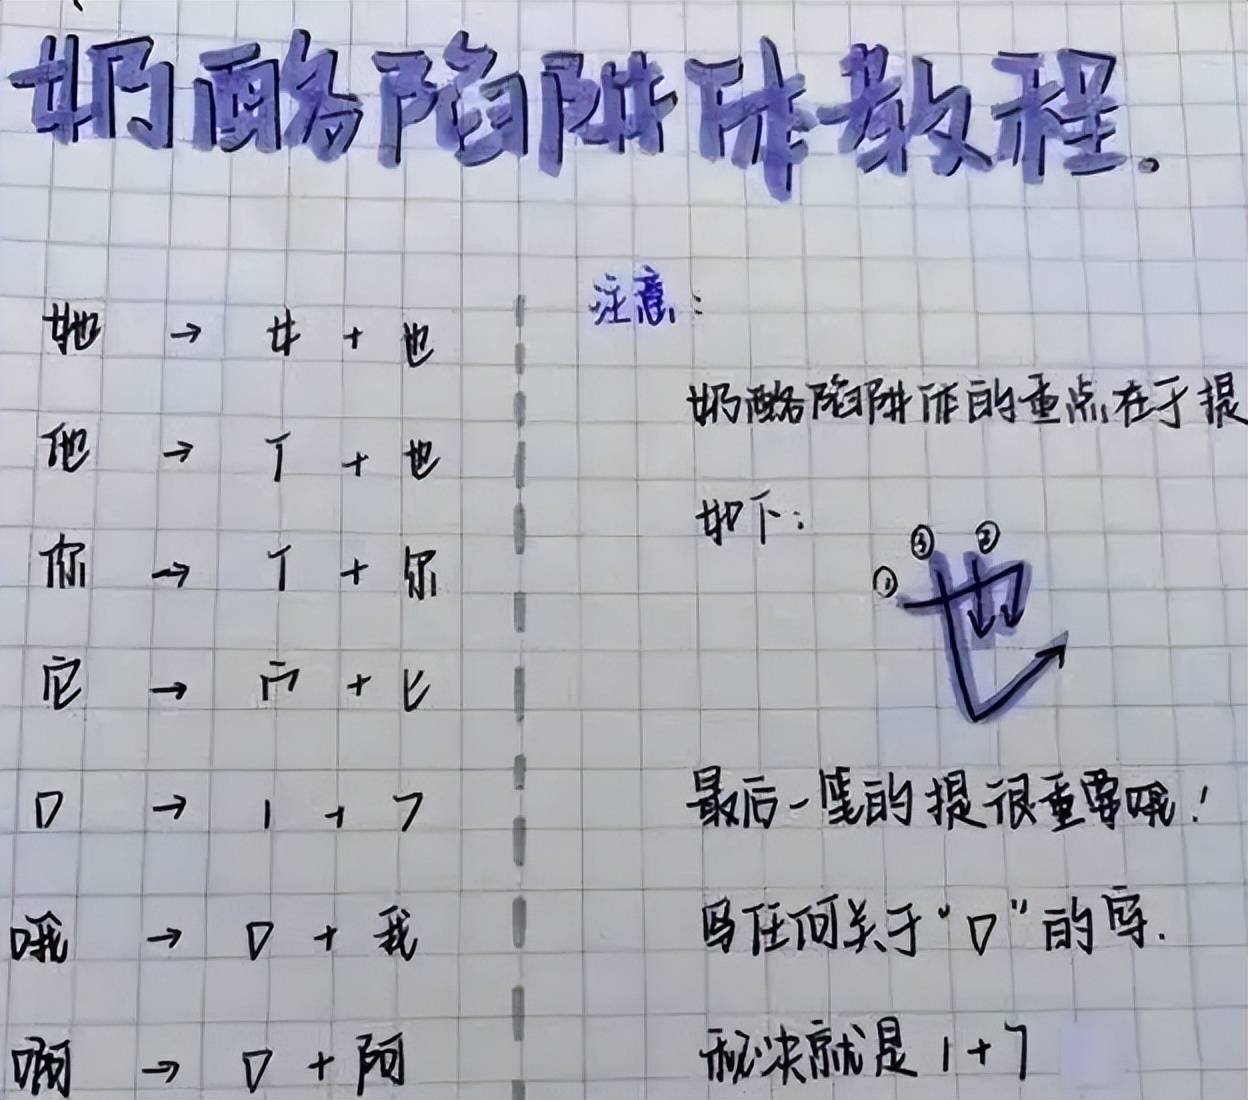 奶酪陷阱体教程。
她 → 女 + 也
他 → 亻 + 也
你 → 亻 + 尔
它 → 宀 + 匕
口 → 1 + 7
哦 → 口 + 我
啊 → 口 + 阿
注意:
奶酪陷阱体的重点在于提
如下:
① ③ ② 也
最后一笔的提很重要哦!
写任何关于“口”的字.
秘诀就是 1+7